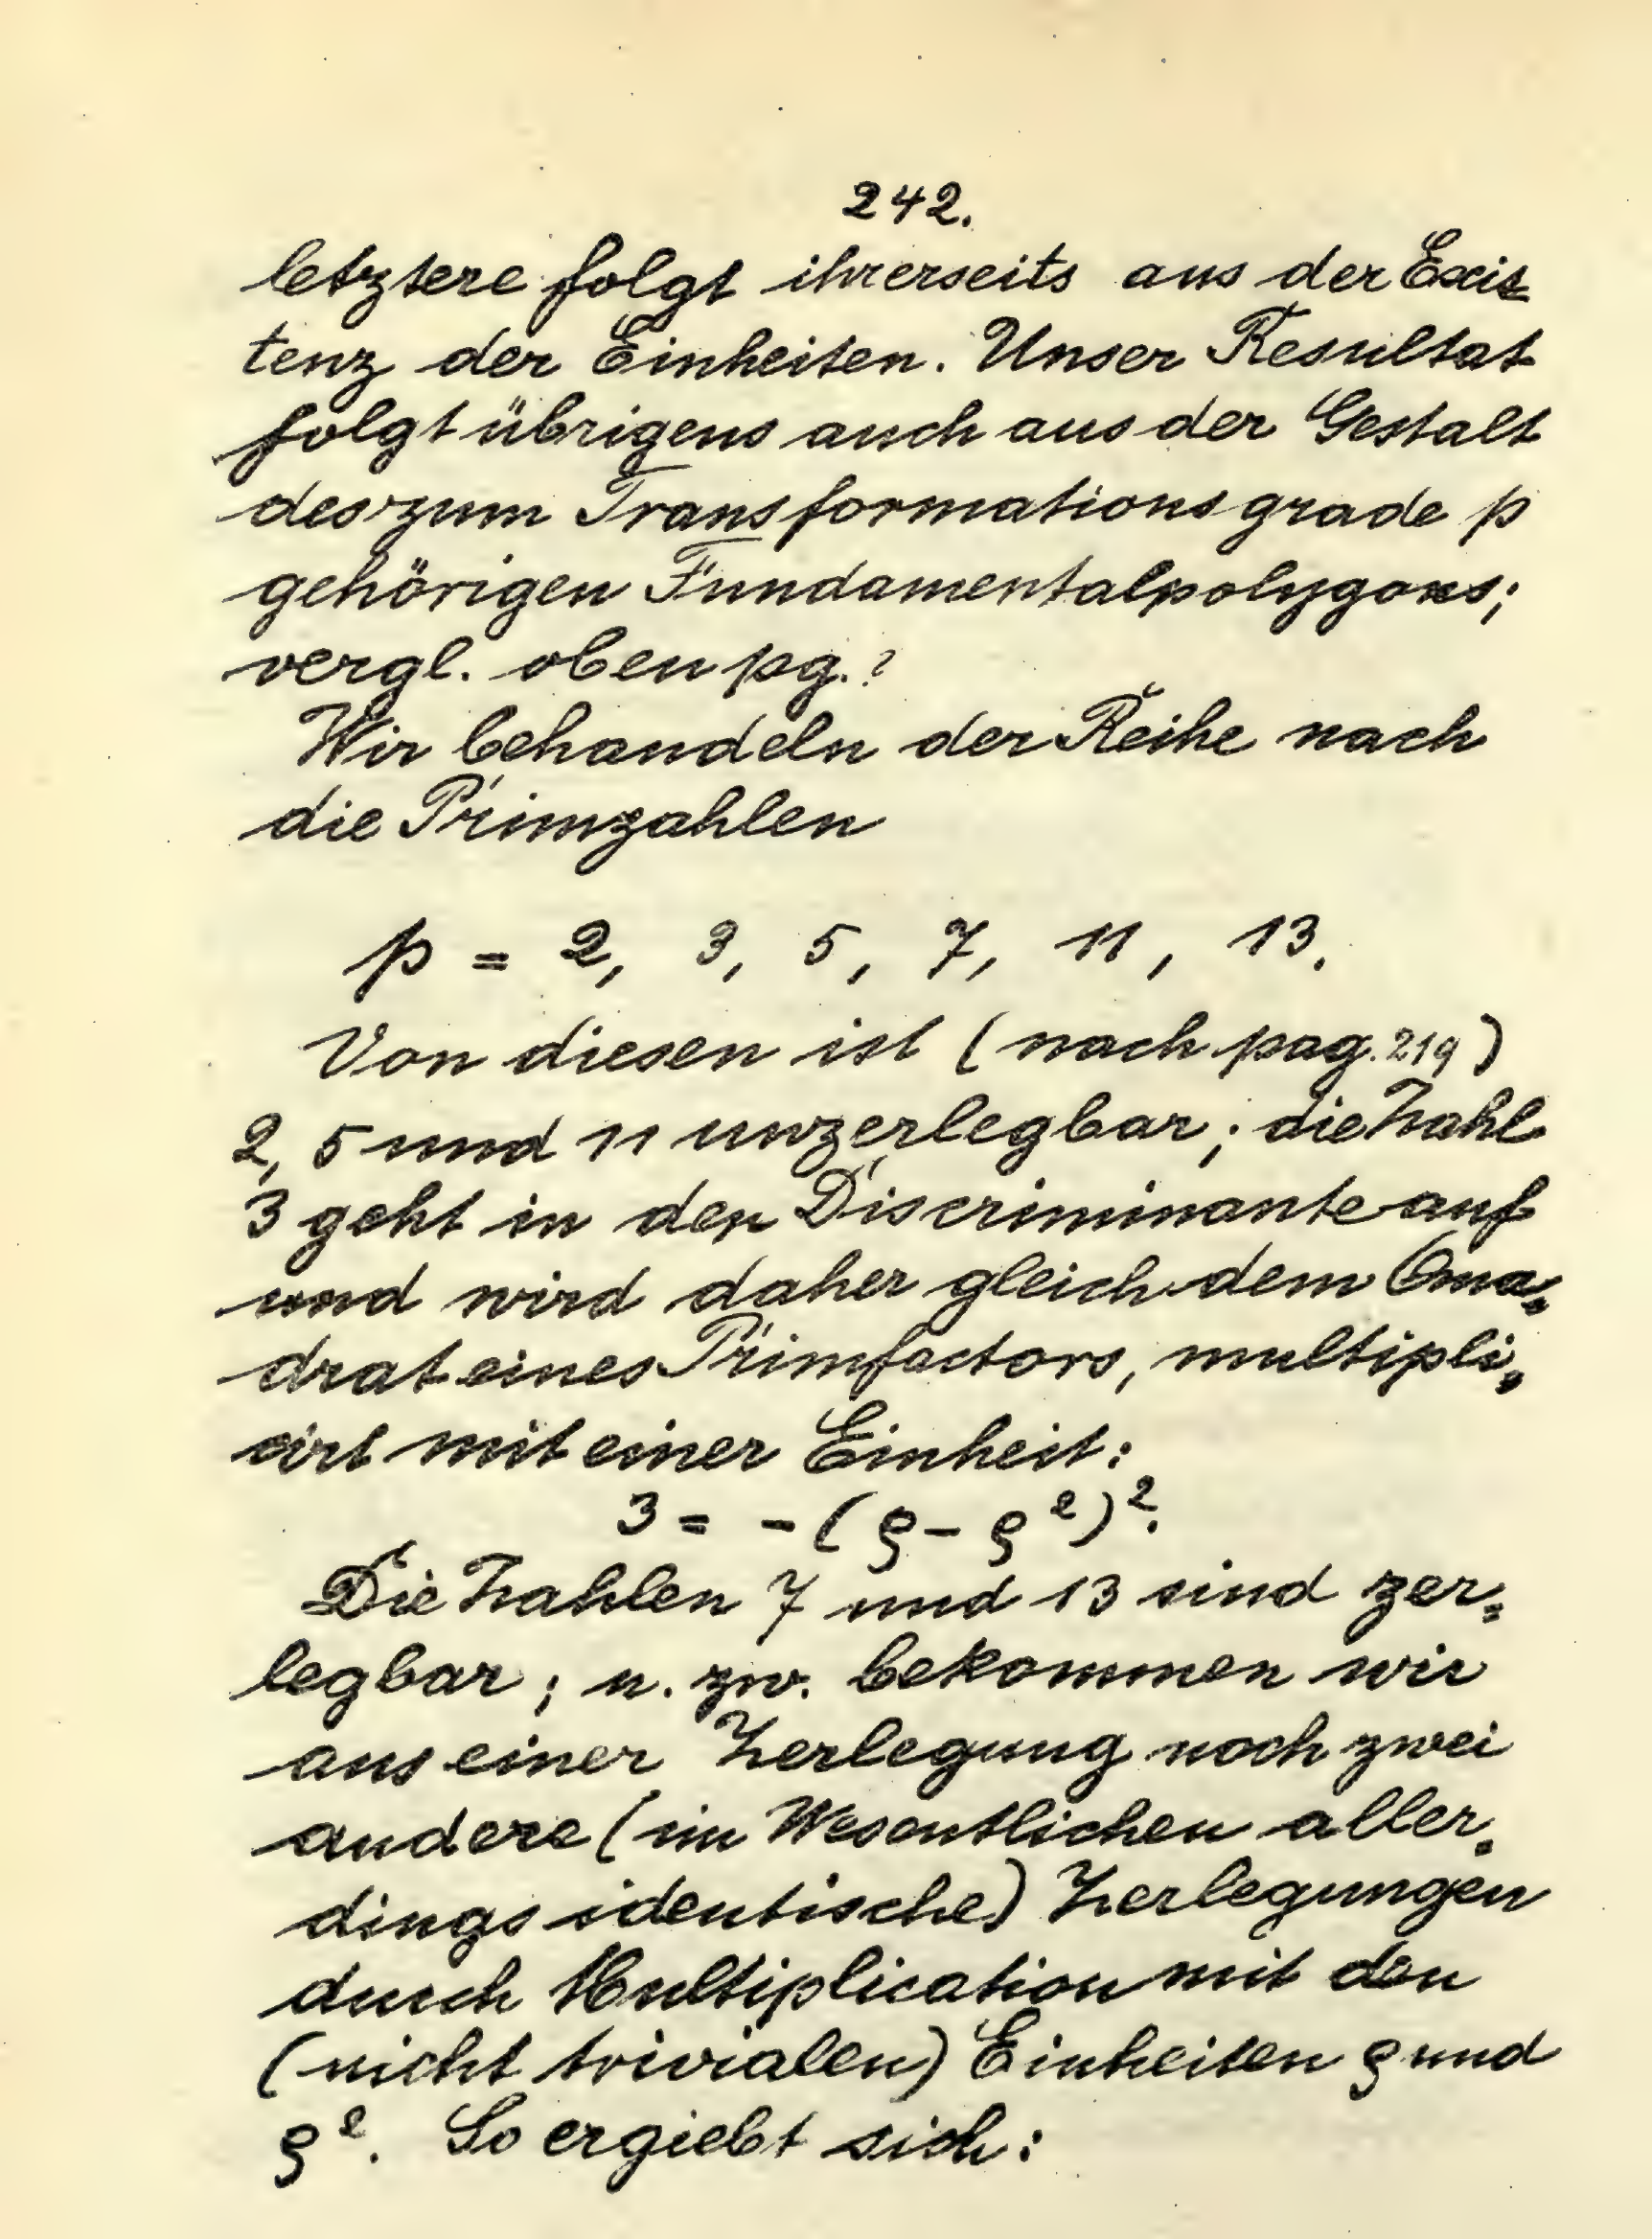 242.
letztere folgt ihrerseits aus der Exis=
tenz der Einheiten. Unser Resultat
folgt übrigens auch aus der Gestalt
des zum Transformationsgrade p
gehörigen Fundamentalpolygons;
vergl. oben pg. ?
Wir behandeln der Reihe nach
die Primzahlen
p = 2, 3, 5, 7, 11, 13.
Von diesen ist (nach pag. 219)
2, 5 und 11 unzerlegbar; die Zahl
3 geht in der Discriminante auf
und wird daher gleich dem Qua=
drat eines Primfactors, multipli=
cirt mit einer Einheit:
3 = -(ρ - ρ²)².
Die Zahlen 7 und 13 sind zer=
legbar; u. zw. bekommen wir
aus einer Zerlegung noch zwei
andere (im Wesentlichen aller=
dings identische) Zerlegungen
durch Multiplication mit den
(nicht trivialen) Einheiten ρ und
ρ². So ergiebt sich: